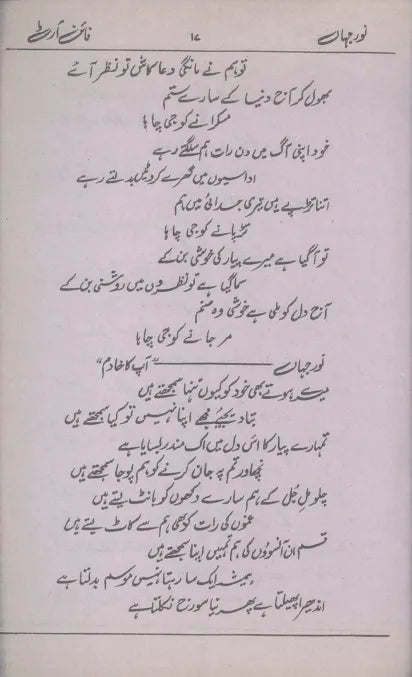 نورجہاں ۱۷ فائن آرٹ
تو ہم نے مانگی دعا کاش تو نظر آئے
بھول کر آج دنیا کے سارے ستم
مسکرانے کو جی چاہا
خود اپنی آگ میں دن رات ہم سلگتے رہے
اداسیوں میں گھرے کروٹیں بدلتے رہے
اتنا تڑپے ہیں تیری جدائی میں ہم
تڑپانے کو جی چاہا
تو آگیا ہے میرے پیار کی خوشی بن کے
سماگیا ہے تو نظروں میں روشنی بن کے
آج دل کو ملی ہے خوشی وہ صنم
مر جانے کو جی چاہا
نورجہاں ــــــــــــ "آپ کا خادم"
میرے ہوتے بھی خود کو کیوں تنہا سمجھتے ہیں
بتا دیجئے مجھے اپنا نہیں تو کیا سمجھتے ہیں
تمہارے پیار کا اس دل میں اک مندر بسایا ہے
نچھاور تم پہ جان کرنے کو ہم پوجا سمجھتے ہیں
چلو مل جُل کے ہم سارے دکھوں کو بانٹ لیتے ہیں
غموں کی رات کو بھی ہم سے کاٹ لیتے ہیں
قسم ان آنسوؤں کی ہم تمہیں اپنا سمجھتے ہیں
ہمیشہ ایک سا رہتا نہیں موسم بدلتا ہے
اندھیرا پھیلتا ہے پھر نیا سورج نکلتا ہے